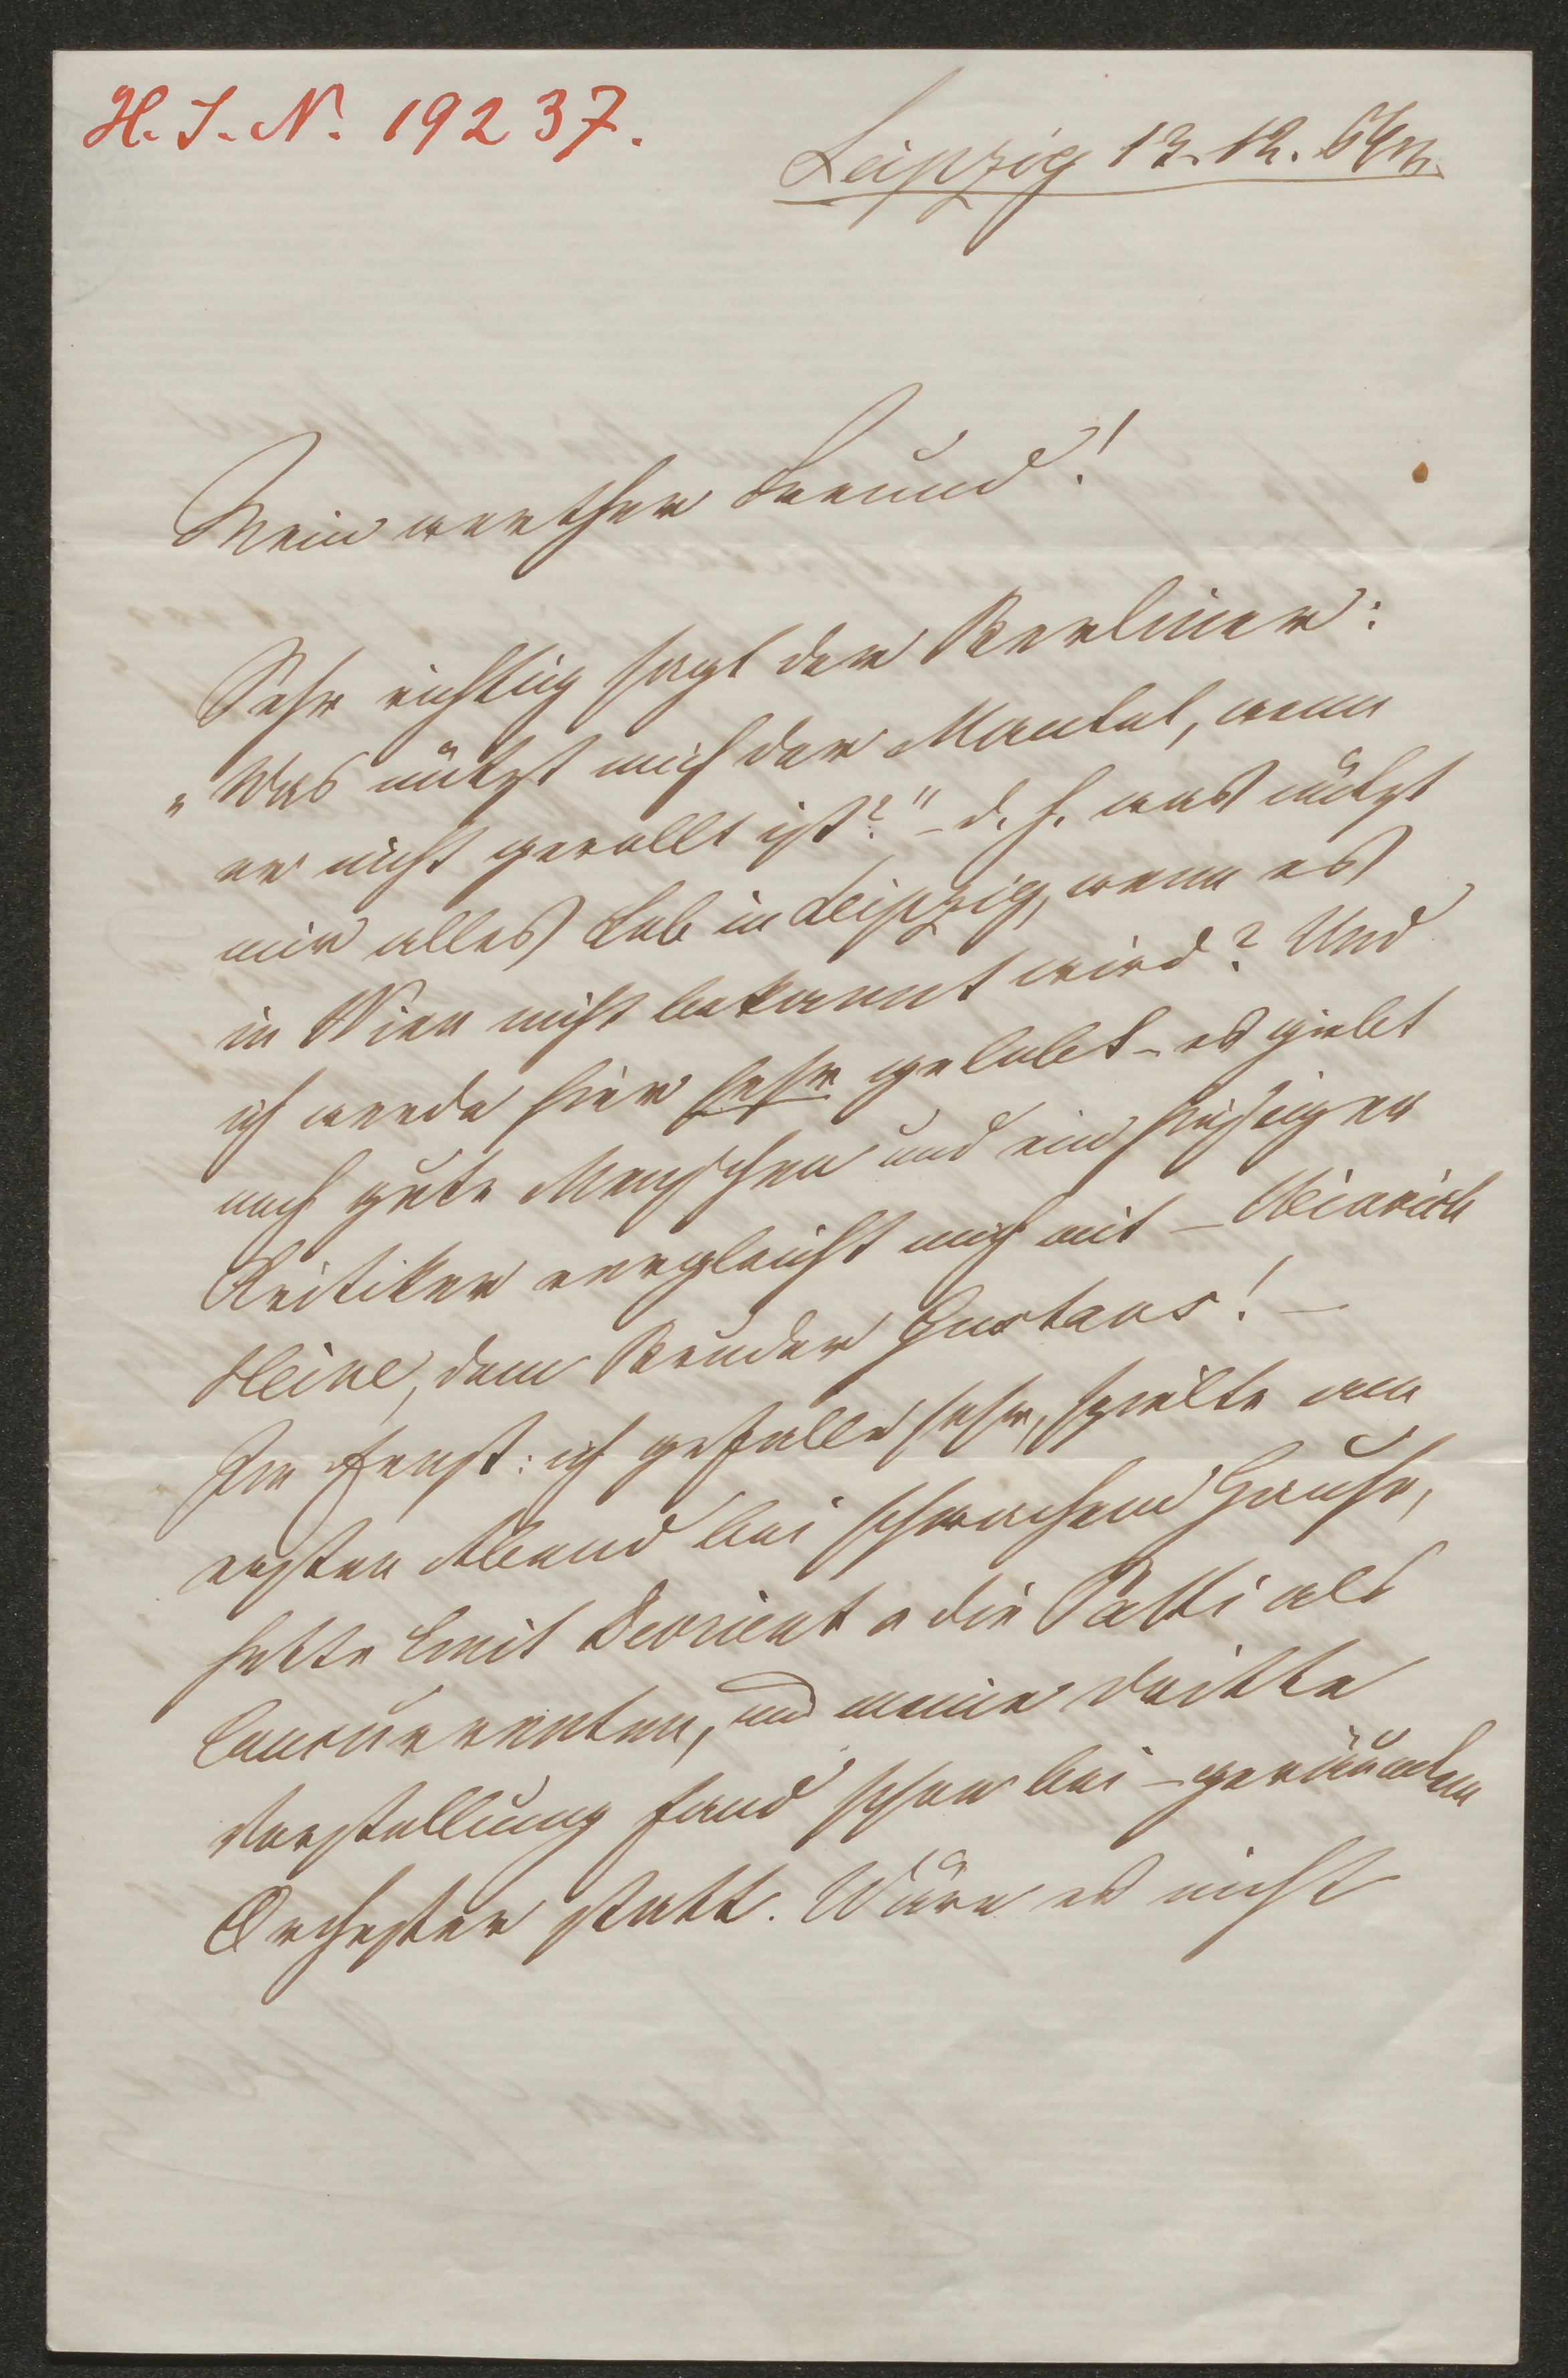 H. I. N. 19237.
Leipzig 13. 12.
Mein werther Freund!
Sehr richtig sagt der Berliner:
„Was nützt mich der Mantel, wenn
er nicht gerollt ist?" – d. h. was nützt
mir alles Lob in Leipzig, wenn es
in Wien nicht bekannt wird? Und
ich werde hier sehr gelobt – es giebt
noch gute Menschen und ein hiesiger
Kritiker vergleicht mich mit – Heinrich
Heine, dem Bruder Gustavs! –
Im Ernst: ich gefalle sehr, spielte am
ersten Abend bei schwachem Hause,
hatte Emil Devrient u die Patti als
Concurrenten, und meine dritte
Vorstellung fand schon bei – geräumtem
Orchester statt. Wäre es nicht